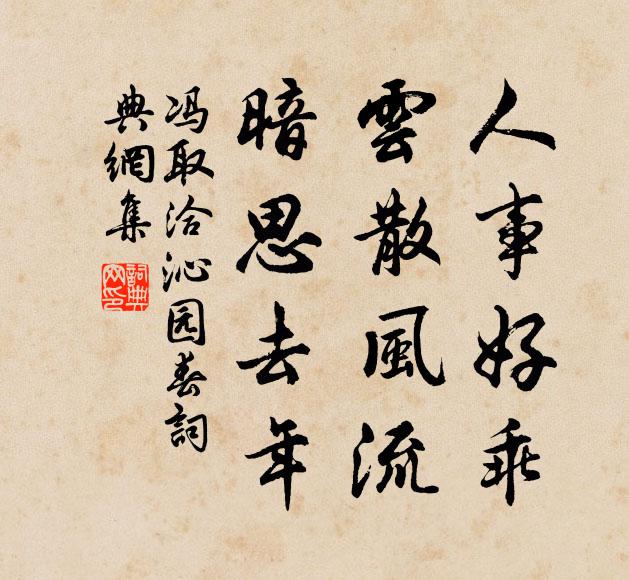 人事好乖
雲散風流
暗思去年
冯取洽沁园春詞
典網集
詞典
网印